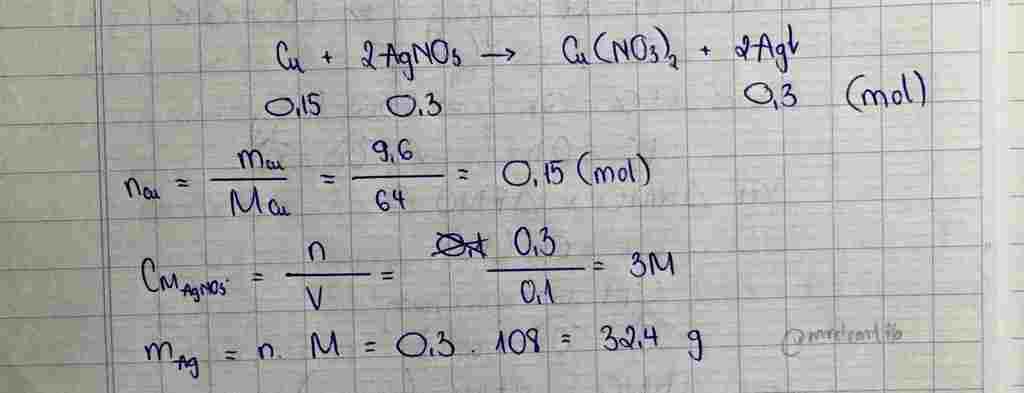 Cu + 2AgNO3 → Cu(NO3)2 + 2Ag↓
0,15 0,3 0,3 (mol)
nCu = mCu / MCu = 9,6 / 64 = 0,15 (mol)
CM AgNO3 = n / V = 0,3 / 0,1 = 3M
mAg = n. M = 0,3 . 108 = 32,4 g